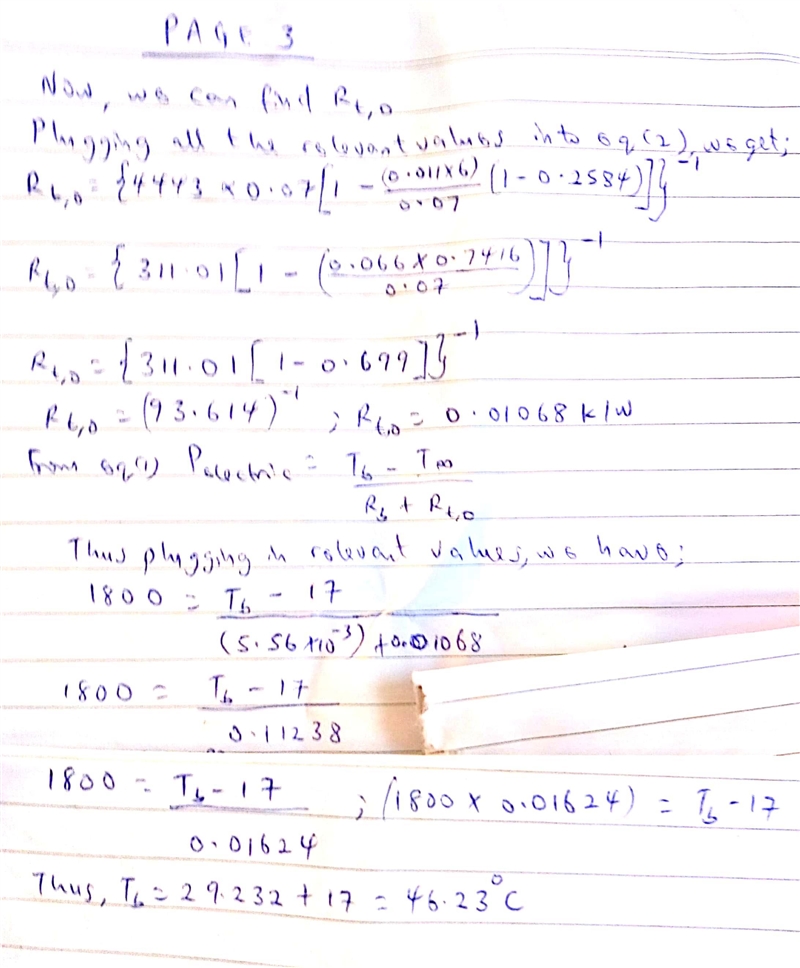 PAGE 3
Now, we can find R_t,o
Plugging all the relevant values into eq (2), we get;
R_t,o = {4443 × 0.07[1 - (0.011×6)/0.07 (1-0.2584)]}^-1
R_t,o = {311.01[1 - (0.066 × 0.7416/0.07)]}^-1
R_t,o = {311.01[1-0.699]}^-1
R_t,o = (93.614)^-1 ; R_t,o = 0.01068 k/w
From eq(1) Pelectric = (T_b - T_∞)/(R_b + R_t,o)
Thus plugging in relevant values, we have;
1800 = (T_b - 17)/((5.56×10^-3) + 0.01068)
1800 = (T_b - 17)/0.11238
1800 = (T_b - 17)/0.01624 ; (1800 × 0.01624) = T_b - 17
Thus, T_b = 29.232 + 17 = 46.23°C